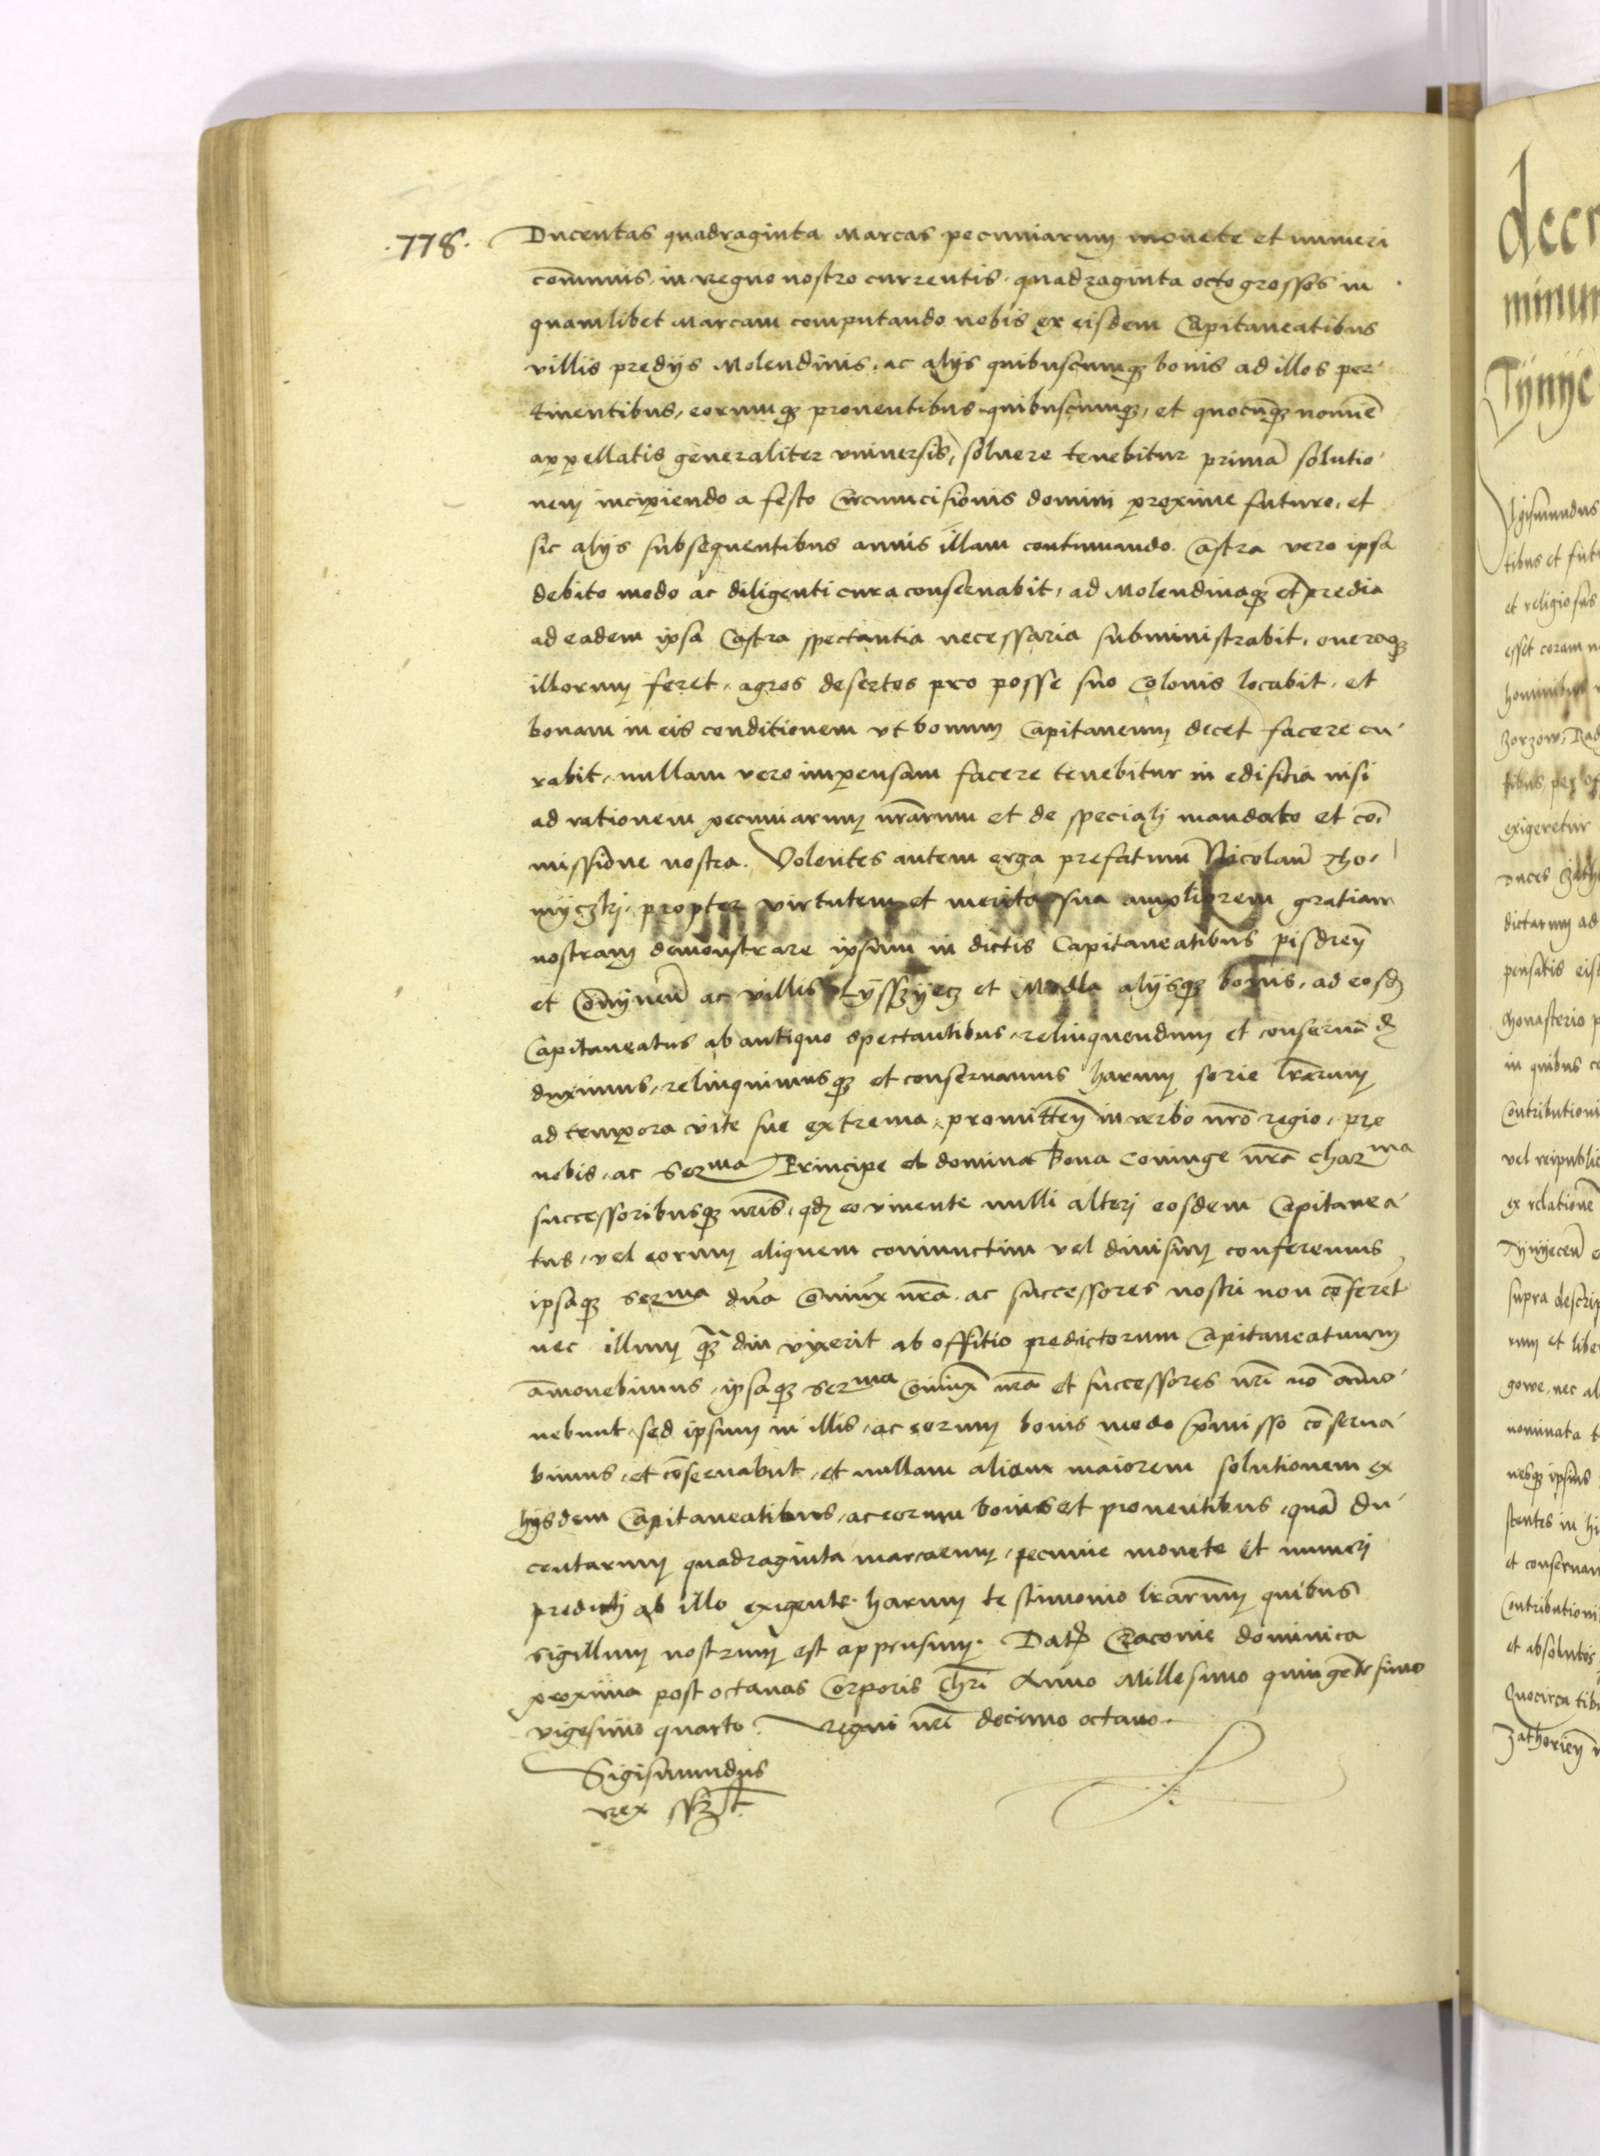 .778.
Ducentas quadraginta Marcas pecuniarum monete et numeri
com̄unis in regno nostro currentis quadraginta octo grossos in
quamlibet Marcam computando nobis ex eisdem Capitaneatibus
villis predijs Molendinis, ac alijs quibuscumqȝ bonis ad illos per-
tinentibus, eorumqȝ prouentibus quibuscumqȝ, et quocūqȝ nomīe
appellatis generaliter vniuersis, soluere tenebitur primā solutio-
nem incipiendo a festo Circumcisionis domini proxime futuro, et
sic alijs subsequentibus annis illam continuando. Castra vero ipsa
debito modo ac diligenti cura conseruabit, ad Molendinaqȝ et predia
ad eadem ipsa Castra spectantia necessaria subministrabit, oneraqȝ
illorum feret, agros desertos pro posse suo Colonis locabit, et
bonam in eis conditionem vt bonum Capitaneum decet facere cu-
rabit, nullam vero impensam facere tenebitur in edificia nisi
ad rationem pecuniarum nr̄arum et de speciali mandato et com̄-
missione nostra. Volentes autem erga prefatum Nicolaū Tho-
myczki, propter virtutem et merita sua ampliorem gratiam
nostram demonstrare ipsum in dictis Capitaneatibus pisdreñ
et Conyneñ ac villis Lysszyecz et Modla alijsqȝ bonis, ad eosdꝫ
Capitaneatus ab antiquo spectantibus, relinquendum et conseruādꝫ
duximus, relinquimusqȝ et conseruamus harum serie lr̄arum
ad tempora vite sue extrema, promitteñ in verbo nr̄o regio, pro
nobis, ac Serma Principe et domina Bona Coniuge nr̄a charma
successoribusqȝ nr̄is, qdꝫ eo viuente nulli alteri eosdem Capitanea-
tus, vel eorum aliquem coniunctim vel diuisim conferemus
ipsaqȝ Serma dn̄a Coniunx nr̄a ac successores nostri non cōferēt
nec illum qȝ̄ diu vixerit ab offitio predictorum Capitaneatuum
am̄ouebimus, ipsaqȝ Serma Coniūx nr̄a et successores nr̄i nō am̄o-
uebunt, sed ipsum in illis, ac eorum bonis modo p̄misso cōserua-
bimus, et cōseruabūt, et nullam aliam maiorem solutionem ex
hijsdem Capitaneatibus, ac eorum bonis et prouentibus, quā du-
centarum quadraginta marcarum, pecunie monete et numeri
predicti ab illo exigente. harum testimonio lr̄arum quibus
sigillum nostrum est appensum. Datꝫ Cracouie dominica
proxima post octauas Corporis Chr̄i Anno Millesimo quingētesimo
vigesimo quarto. Regni nr̄i decimo octauo.
Sigismundus
rex sszt
decr
minum
Tynyc